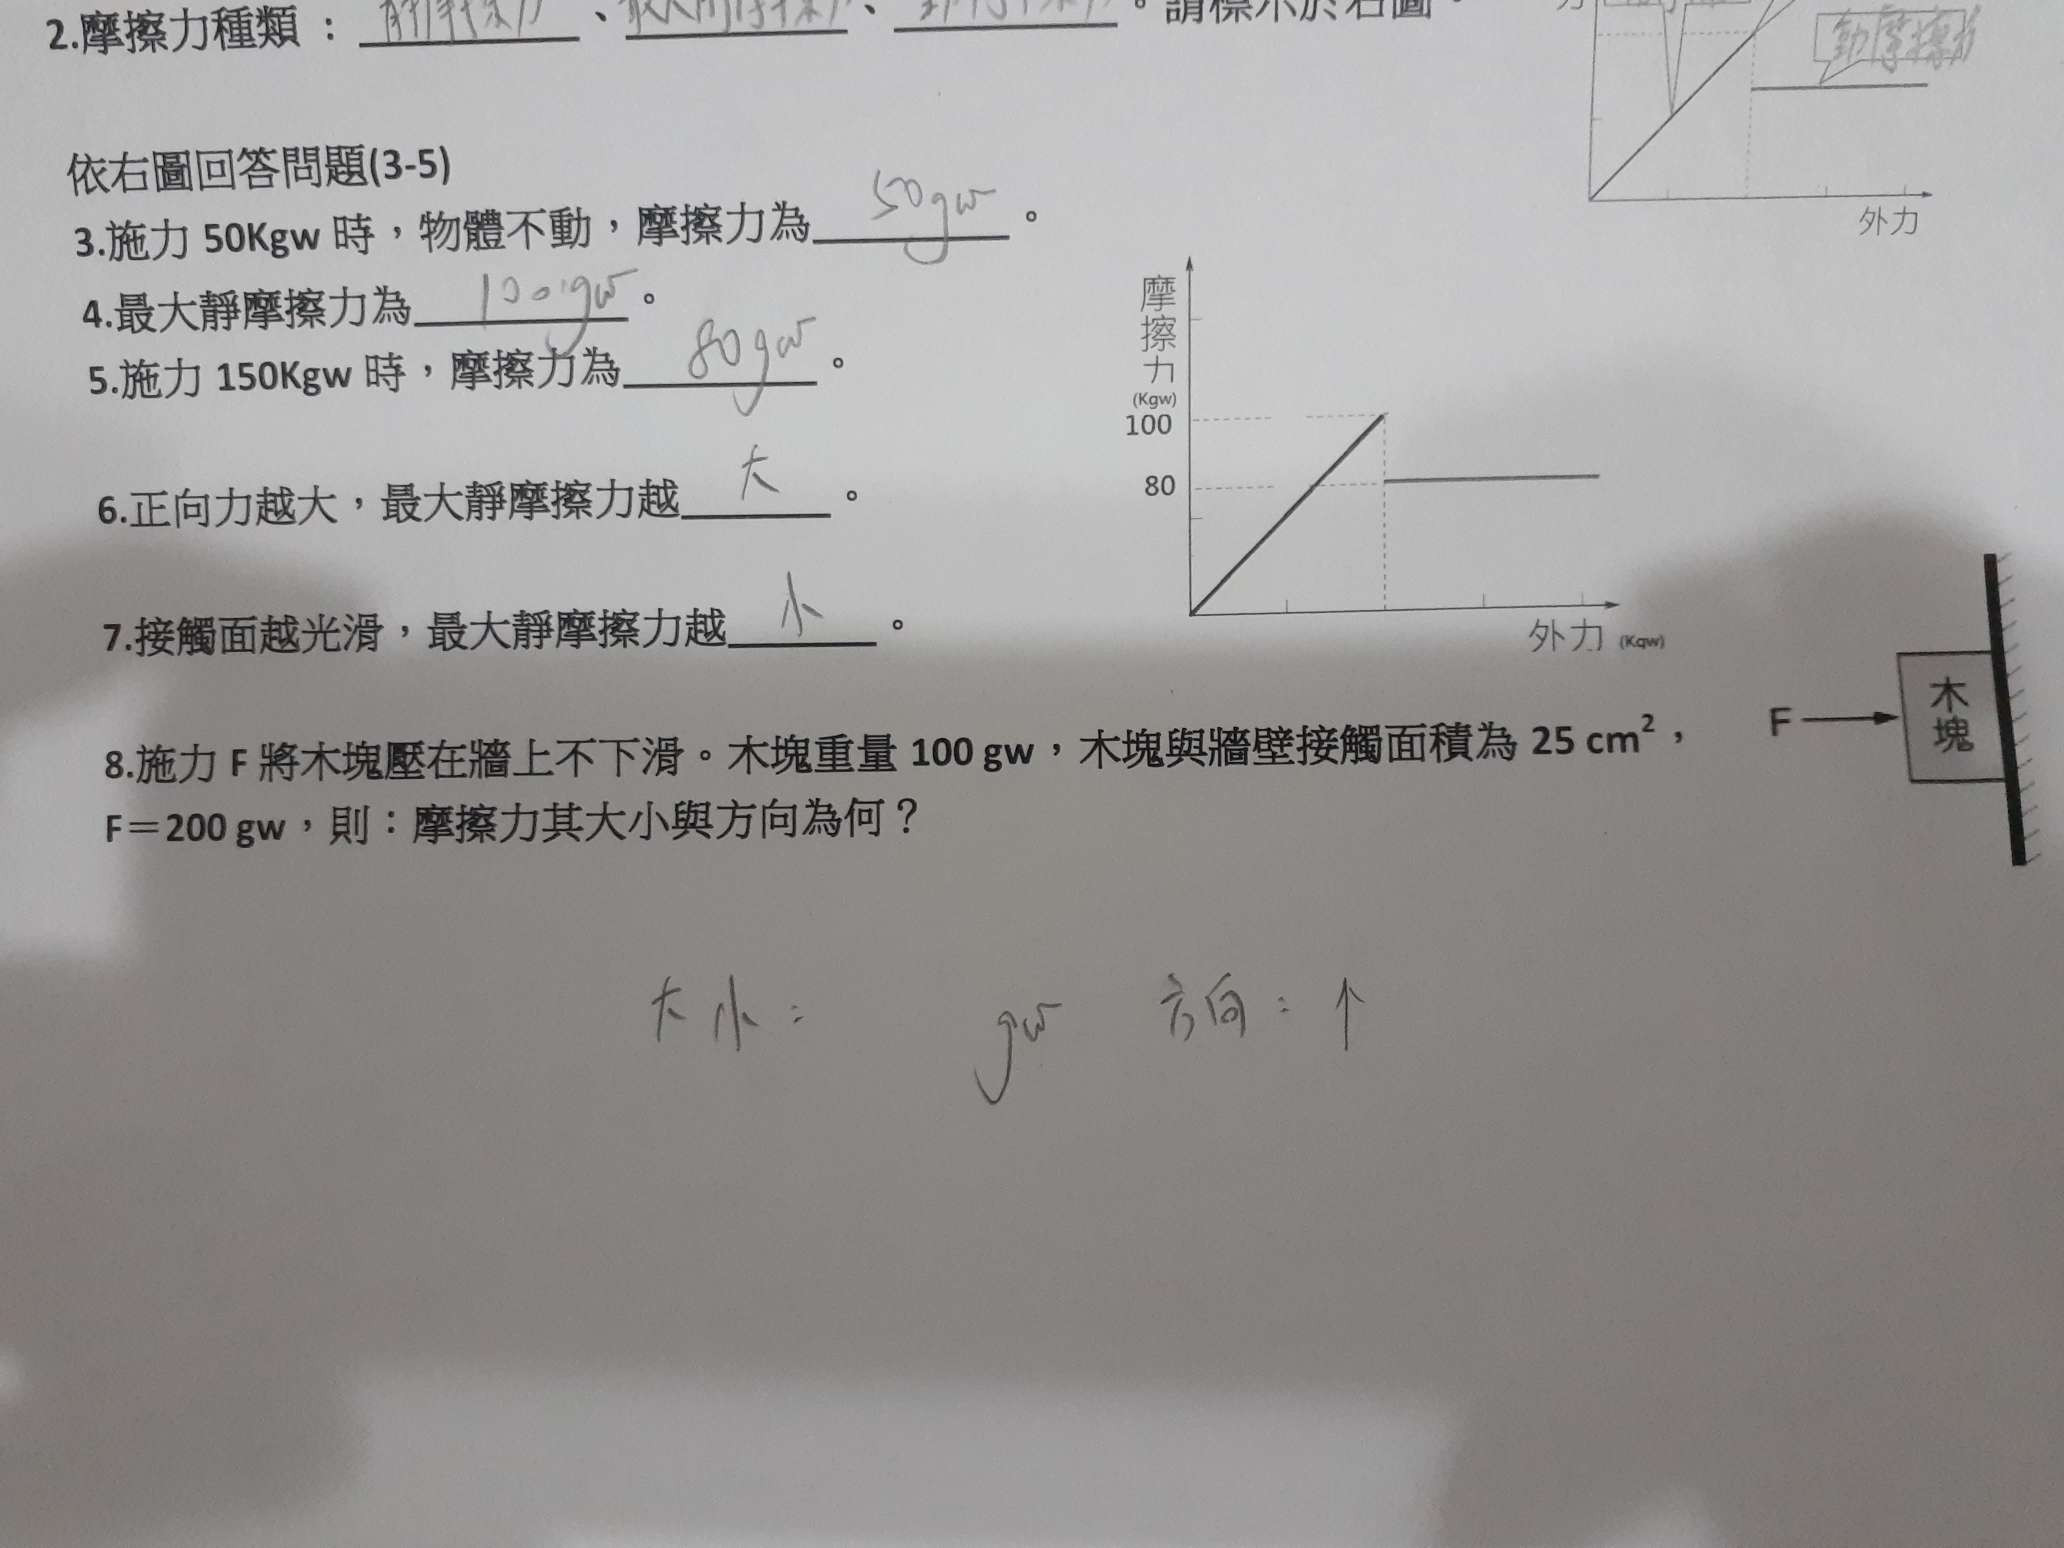 2.摩擦力種類：、、。請標示於右圖。
動摩擦力
外力
依右圖回答問題(3-5)
3.施力 50Kgw 時，物體不動，摩擦力為 50gw 。
4.最大靜摩擦力為 100gw 。
5.施力 150Kgw 時，摩擦力為 80gw 。
摩擦力
(Kgw)
100
80
外力 (Kgw)
6.正向力越大，最大靜摩擦力越 大 。
7.接觸面越光滑，最大靜摩擦力越 小 。
8.施力 F 將木塊壓在牆上不下滑。木塊重量 100 gw，木塊與牆壁接觸面積為 25 cm²，
F＝200 gw，則：摩擦力其大小與方向為何？
F
木塊
大小： gw 方向：↑